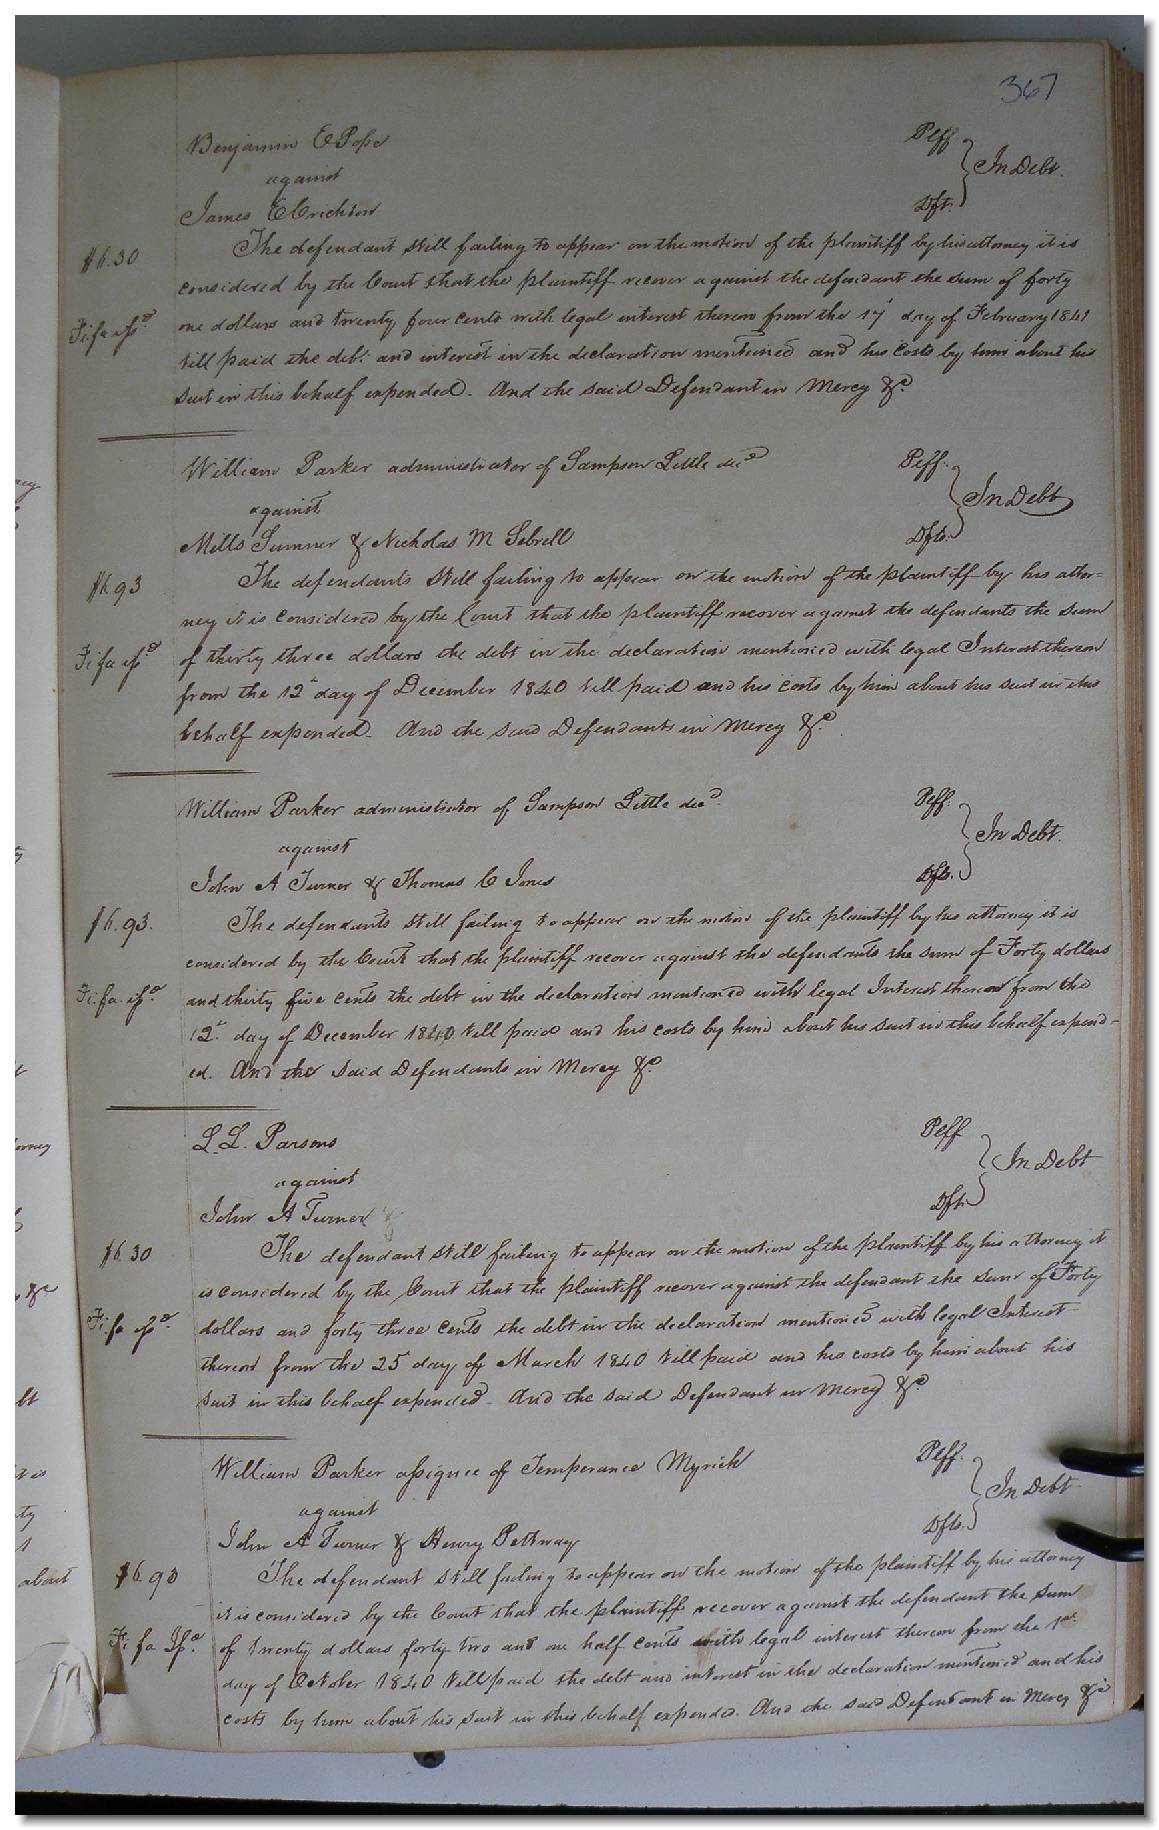 367
Benjamin E Pope Plff
against In Debt.
James E Crichlow Dft.
$6.30 The defendant still failing to appear on the motion of the plaintiff by his attorney it is
considered by the Court that the plaintiff recover against the defendant the sum of forty
Fi fa issd one dollars and twenty four cents with legal interest thereon from the 17 day of February 1841
till paid the debt and interest in the declaration mentioned and his costs by him about his
suit in this behalf expended. And the said Defendant in Mercy &c
William Parker administrator of Sampson Little decd Plff.
against In Debt
Mills Sumner & Nicholas M Sebrell Dfts.
$6.93 The defendants still failing to appear on the motion of the plaintiff by his attor=
ney it is considered by the Court that the plaintiff recover against the defendants the sum
Fi fa issd of thirty three dollars the debt in the declaration mentioned with legal Interest thereon
from the 12 day of December 1840 till paid and his costs by him about his suit in this
behalf expended. And the said Defendants in Mercy &c.
William Parker administrator of Sampson Little decd. Plff.
against In Debt.
John A Turner & Thomas C Jones Dfts.
$6.93. The defendants still failing to appear on the motion of the plaintiff by his attorney it is
considered by the Court that the plaintiff recover against the defendants the sum of Forty dollars
Fi. fa. issd. and thirty five cents the debt in the declaration mentioned with legal Interest thereon from the
12. day of December 1840 till paid and his costs by him about his suit in this behalf expend=
ed. And the said Defendants in Mercy &c
L. L. Parsons Plff
against In Debt
John A Turner Dft.
$6.30 The defendant still failing to appear on the motion of the plaintiff by his attorney it
is considered by the Court that the plaintiff recover against the defendant the sum of Forty
Fi. fa issd. dollars and forty three cents the debt in the declaration mentioned with legal Interest
thereon from the 25 day of March 1840 till paid and his costs by him about his
suit in this behalf expended. And the said Defendant in Mercy &c
William Parker assignee of Temperance Myrick Plff.
against In Debt
John A Turner & Henry Pettway Dfts.
$6.93 The defendant still failing to appear on the motion of the plaintiff by his attorney
it is considered by the Court that the plaintiff recover against the defendant the sum
Fi fa Issd. of twenty dollars forty two and one half cents with legal interest thereon from the 1st
day of October 1840 till paid the debt and interest in the declaration mentioned and his
costs by him about his suit in this behalf expended. And the said Defendant in Mercy &c